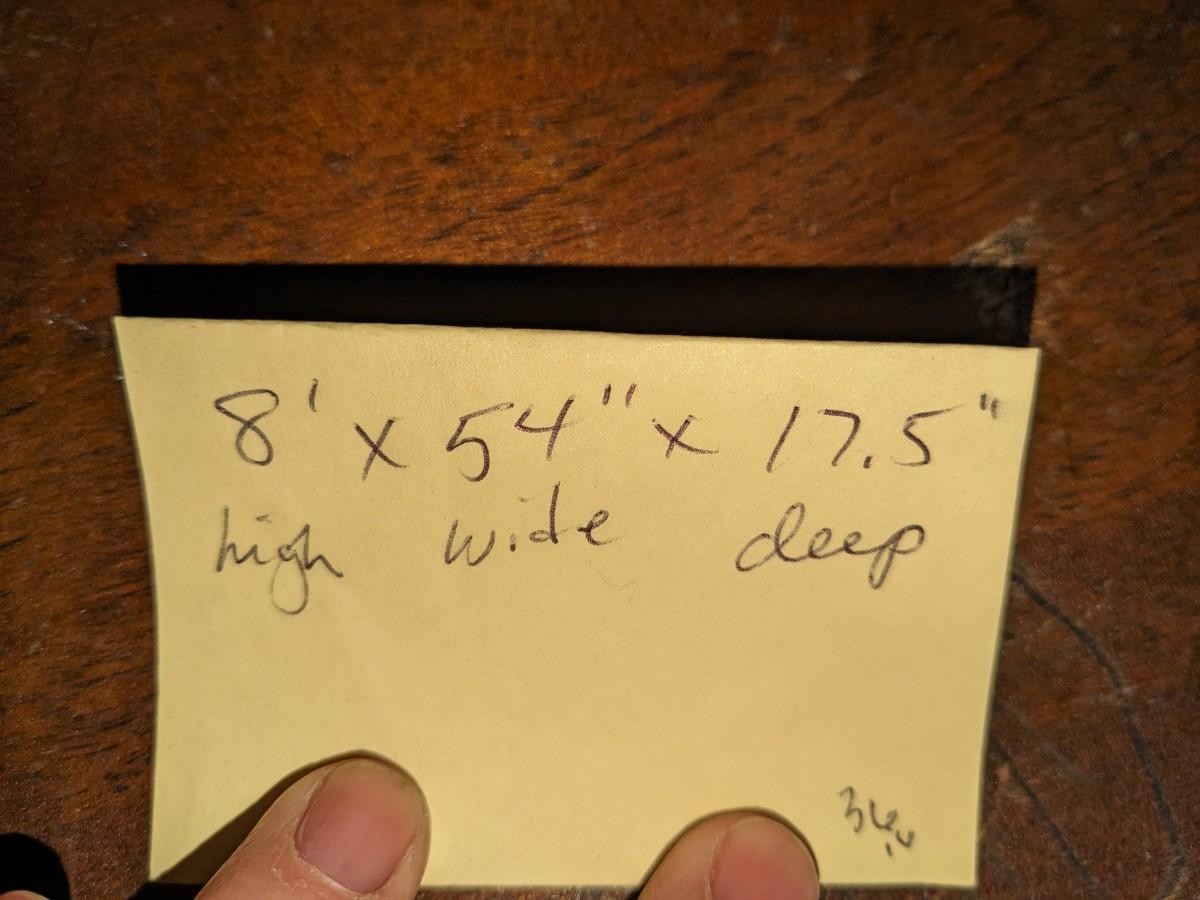 8' x 54" x 17.5"
high wide deep